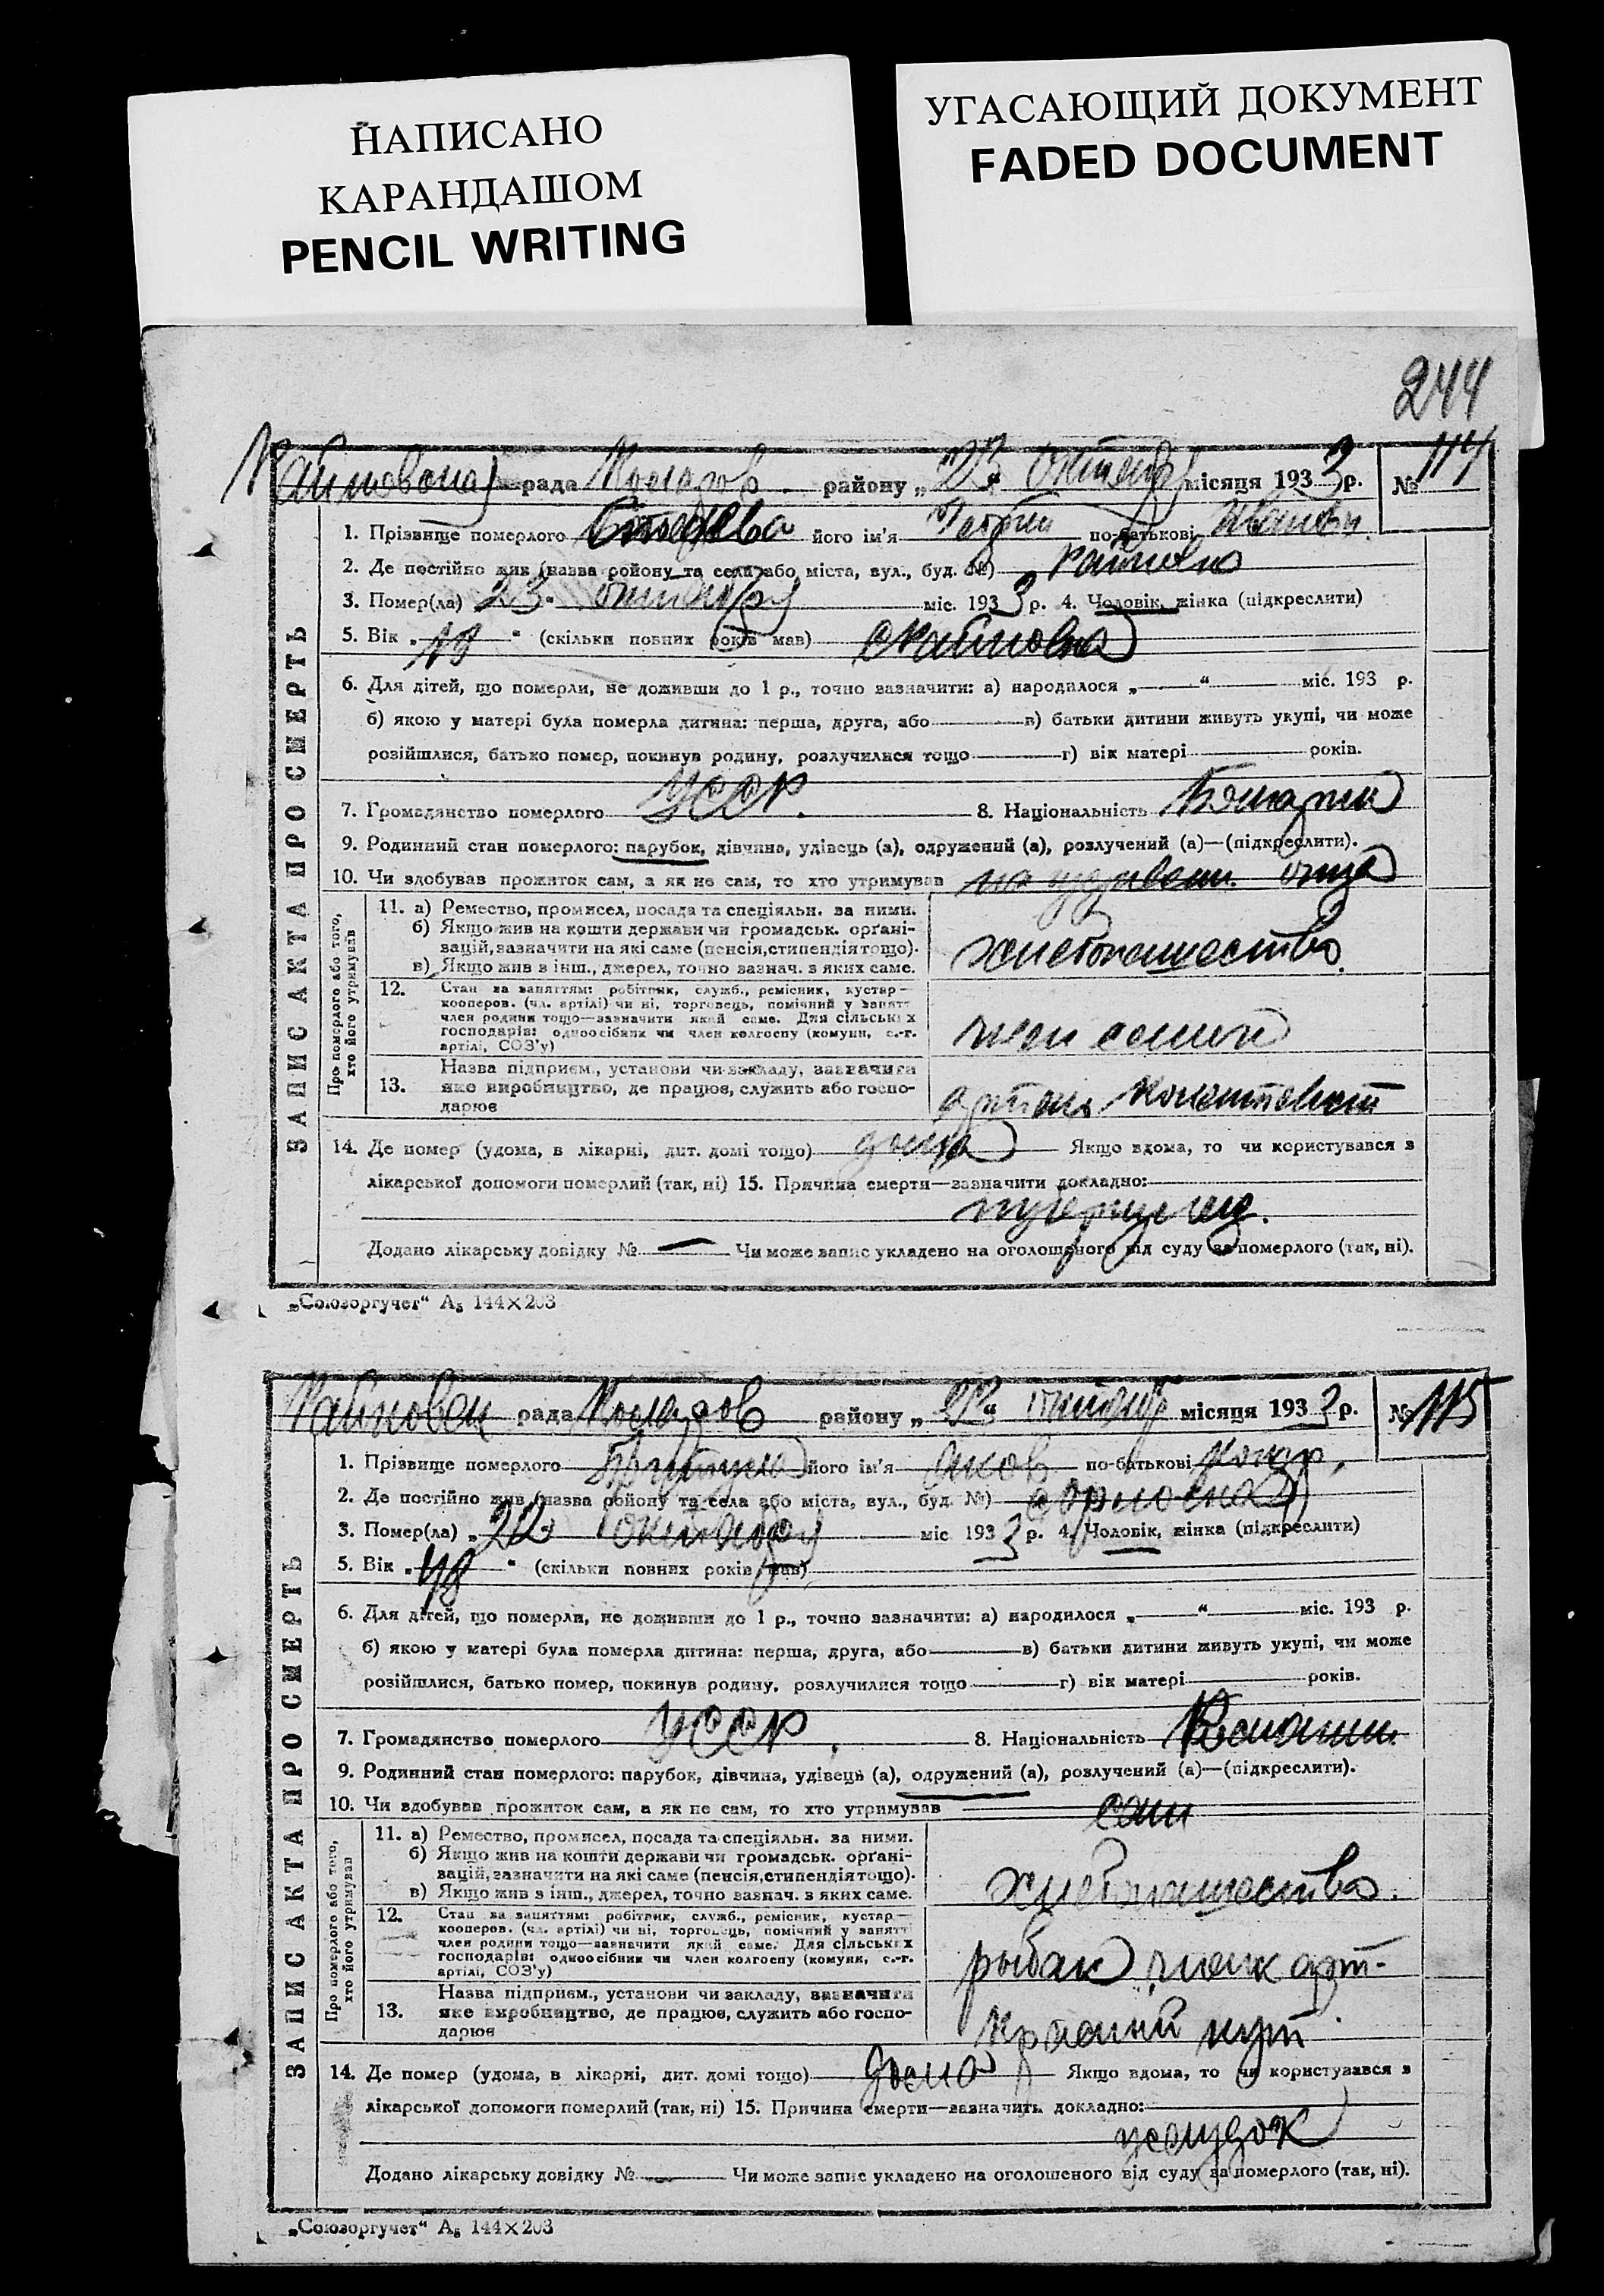 НАПИСАНО
КАРАНДАШОМ
PENCIL WRITING
УГАСАЮЩИЙ ДОКУМЕНТ
FADED DOCUMENT
244
рада району „23“ октября місяця 1933 р. № 114
1. Прізвище померлого його ім'я по-батькові
2. Де постійно жив (назва району та села або міста, вул., буд. №)
3. Помер(ла) „23“ октября міс. 1933 р. 4. Чоловік, жінка (підкреслити)
5. Вік „18“ (скільки повних років мав)
6. Для дітей, що померли, не доживши до 1 р., точно зазначити: а) народилося „ “ міс. 193 р.
б) якою у матері була померла дитина: перша, друга, або в) батьки дитини живуть укупі, чи може
розійшлися, батько помер, покинув родину, розлучилися тощо г) вік матері років.
7. Громадянство померлого УССР. 8. Національність
9. Родинний стан померлого: парубок, дівчина, удівець (а), одружений (а), розлучений (а)—(підкреслити).
10. Чи здобував прожиток сам, а як не сам, то хто утримував на иждивен. отца
ЗАПИС АКТА ПРО СМЕРТЬ
Про померлого або того,
хто його утримував
11. а) Ремество, промисел, посада та спеціяльн. за ними.
б) Якщо жив на кошти держави чи громадськ. орґані-
зацій, зазначити на які саме (пенсія, стипендія тощо).
в) Якщо жив з інш., джерел, точно зазнач. з яких саме.
хлебопашество
12. Стан за заняттям: робітник, служб., ремісник, кустар—
кооперов. (чл. артілі) чи ні, торговець, помічний у занятті
член родини тощо—зазначити який саме. Для сільських
господарів: одноосібник чи член колгоспу (комуни, с.-г.
артілі, СОЗ'у)
член семьи
13. Назва підприєм., установи чи закладу, зазначити
яке виробництво, де працює, служить або госпо-
дарює
артель
14. Де помер (удома, в лікарні, дит. домі тощо) дома Якщо вдома, то чи користувався з
лікарської допомоги померлий (так, ні) 15. Причина смерти—зазначити докладно:
туберкулез.
Додано лікарську довідку № — Чи може запис укладено на оголошеного від суду за померлого (так, ні).
„Союзоргучет“ А₅ 144×203
рада району „22“ октября місяця 1933 р. № 115
1. Прізвище померлого його ім'я Яков по-батькові
2. Де постійно жив (назва району та села або міста, вул., буд. №)
3. Помер(ла) „22“ октября міс. 1933 р. 4. Чоловік, жінка (підкреслити)
5. Вік „48“ (скільки повних років мав)
6. Для дітей, що померли, не доживши до 1 р., точно зазначити: а) народилося „ “ міс. 193 р.
б) якою у матері була померла дитина: перша, друга, або в) батьки дитини живуть укупі, чи може
розійшлися, батько помер, покинув родину, розлучилися тощо г) вік матері років.
7. Громадянство померлого УССР. 8. Національність
9. Родинний стан померлого: парубок, дівчина, удівець (а), одружений (а), розлучений (а)—(підкреслити).
10. Чи здобував прожиток сам, а як не сам, то хто утримував сам
ЗАПИС АКТА ПРО СМЕРТЬ
Про померлого або того,
хто його утримував
11. а) Ремество, промисел, посада та спеціяльн. за ними.
б) Якщо жив на кошти держави чи громадськ. орґані-
зацій, зазначити на які саме (пенсія, стипендія тощо).
в) Якщо жив з інш., джерел, точно зазнач. з яких саме.
хлебопашество.
12. Стан за заняттям: робітник, служб., ремісник, кустар—
кооперов. (чл. артілі) чи ні, торговець, помічний у занятті
член родини тощо—зазначити який саме. Для сільських
господарів: одноосібник чи член колгоспу (комуни, с.-г.
артілі, СОЗ'у)
рыбак, член арт.
13. Назва підприєм., установи чи закладу, зазначити
яке виробництво, де працює, служить або госпо-
дарює
14. Де помер (удома, в лікарні, дит. домі тощо) дома Якщо вдома, то чи користувався з
лікарської допомоги померлий (так, ні) 15. Причина смерти—зазначить докладно:
Додано лікарську довідку № — Чи може запис укладено на оголошеного від суду за померлого (так, ні).
„Союзоргучет“ А₅ 144×203